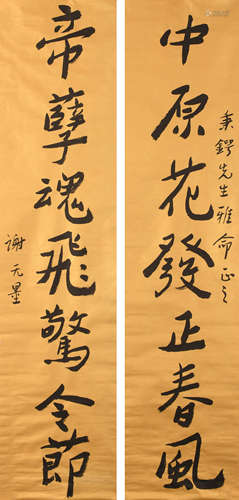 秉鍔先生雅命正之
中原花發正春風
帝孽魂飛驚令節
謝无量